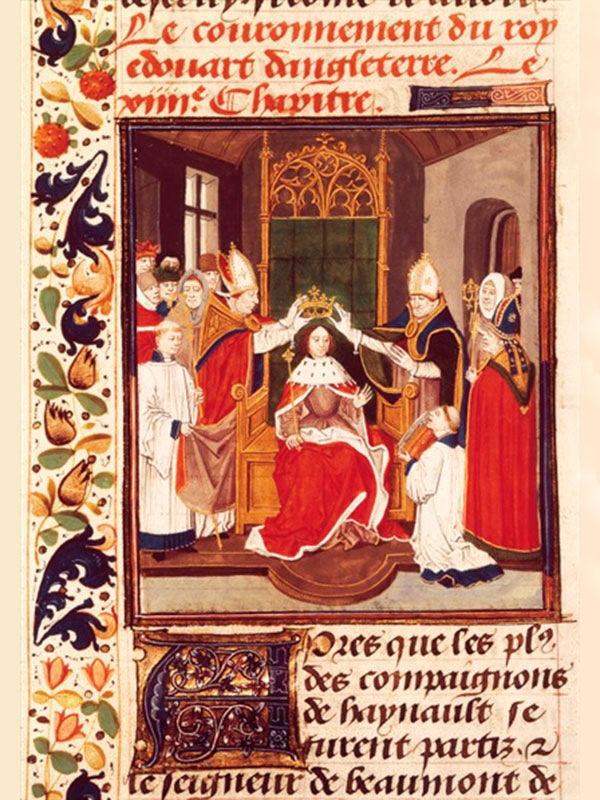 Le couronnement du roy
edouart dangleterre. Le
viiiie. Chapitre.
Apres que les plus
des compaignons
de haynault se
furent partiz. &
le seigneur de beaumont de